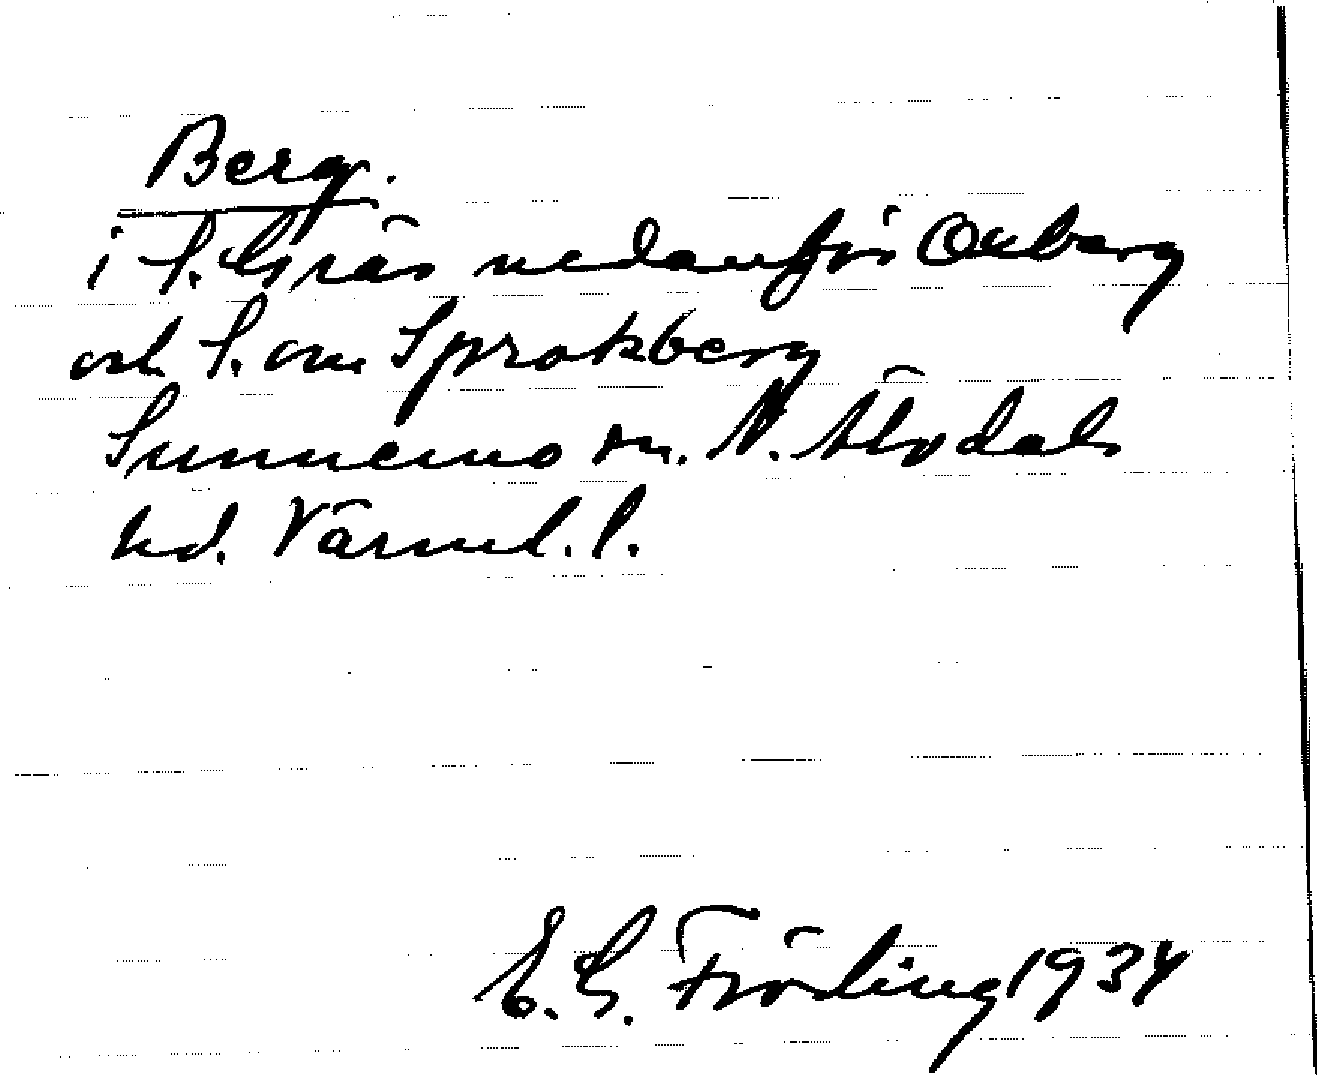 Berg.
i S. Gräs nedanför Oxberg
och S. om Sprakberg
Sunnemo sn. N. Älvdals
hd. Värml. l.
E. G. Fröling 1934